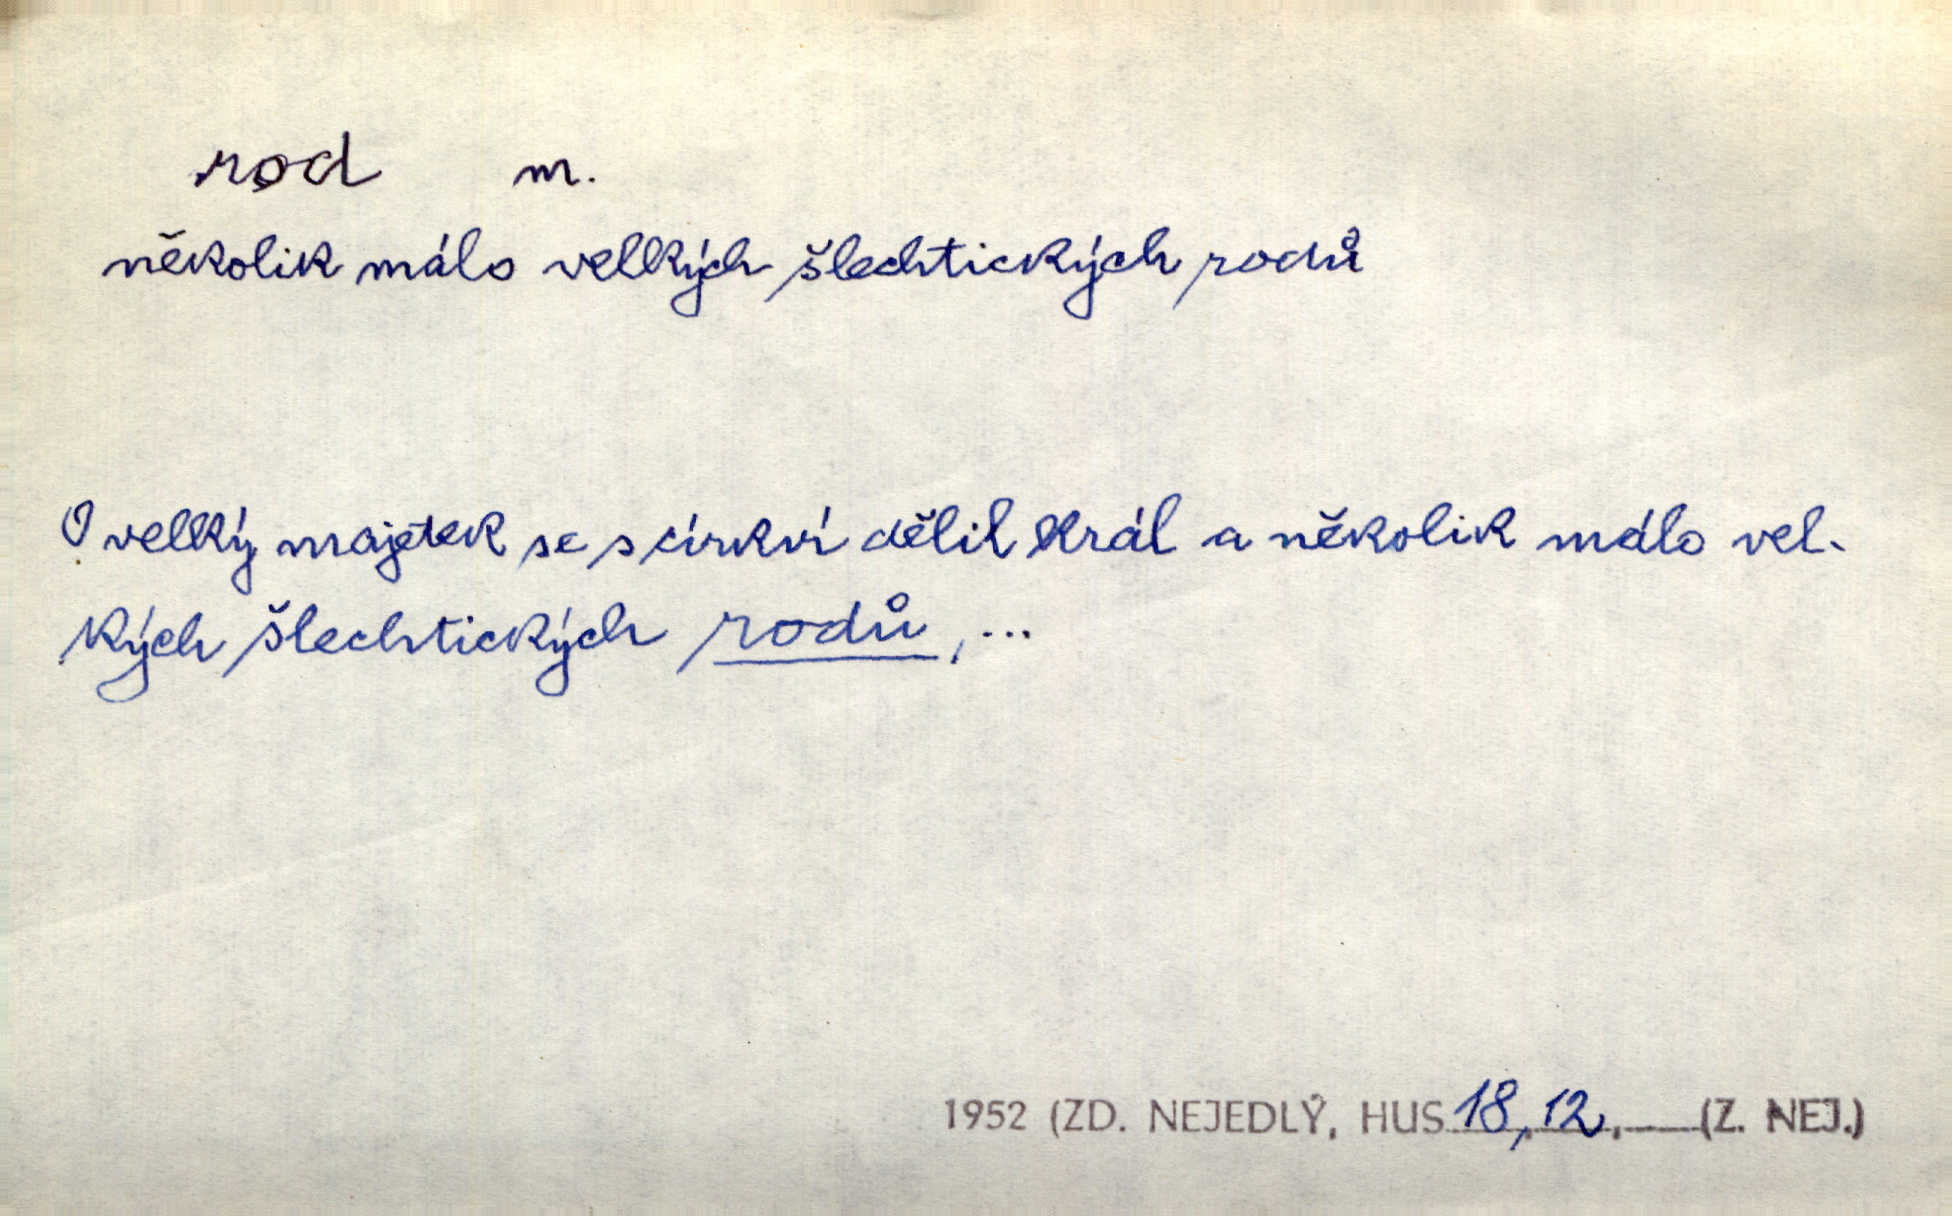 rod m.
několik málo velkých šlechtických rodů
O velký majetek se s církví dělil král a několik málo vel-
kých šlechtických rodů, ...
1952 (ZD. NEJEDLÝ, HUS 18, 12, (Z. NEJ.)